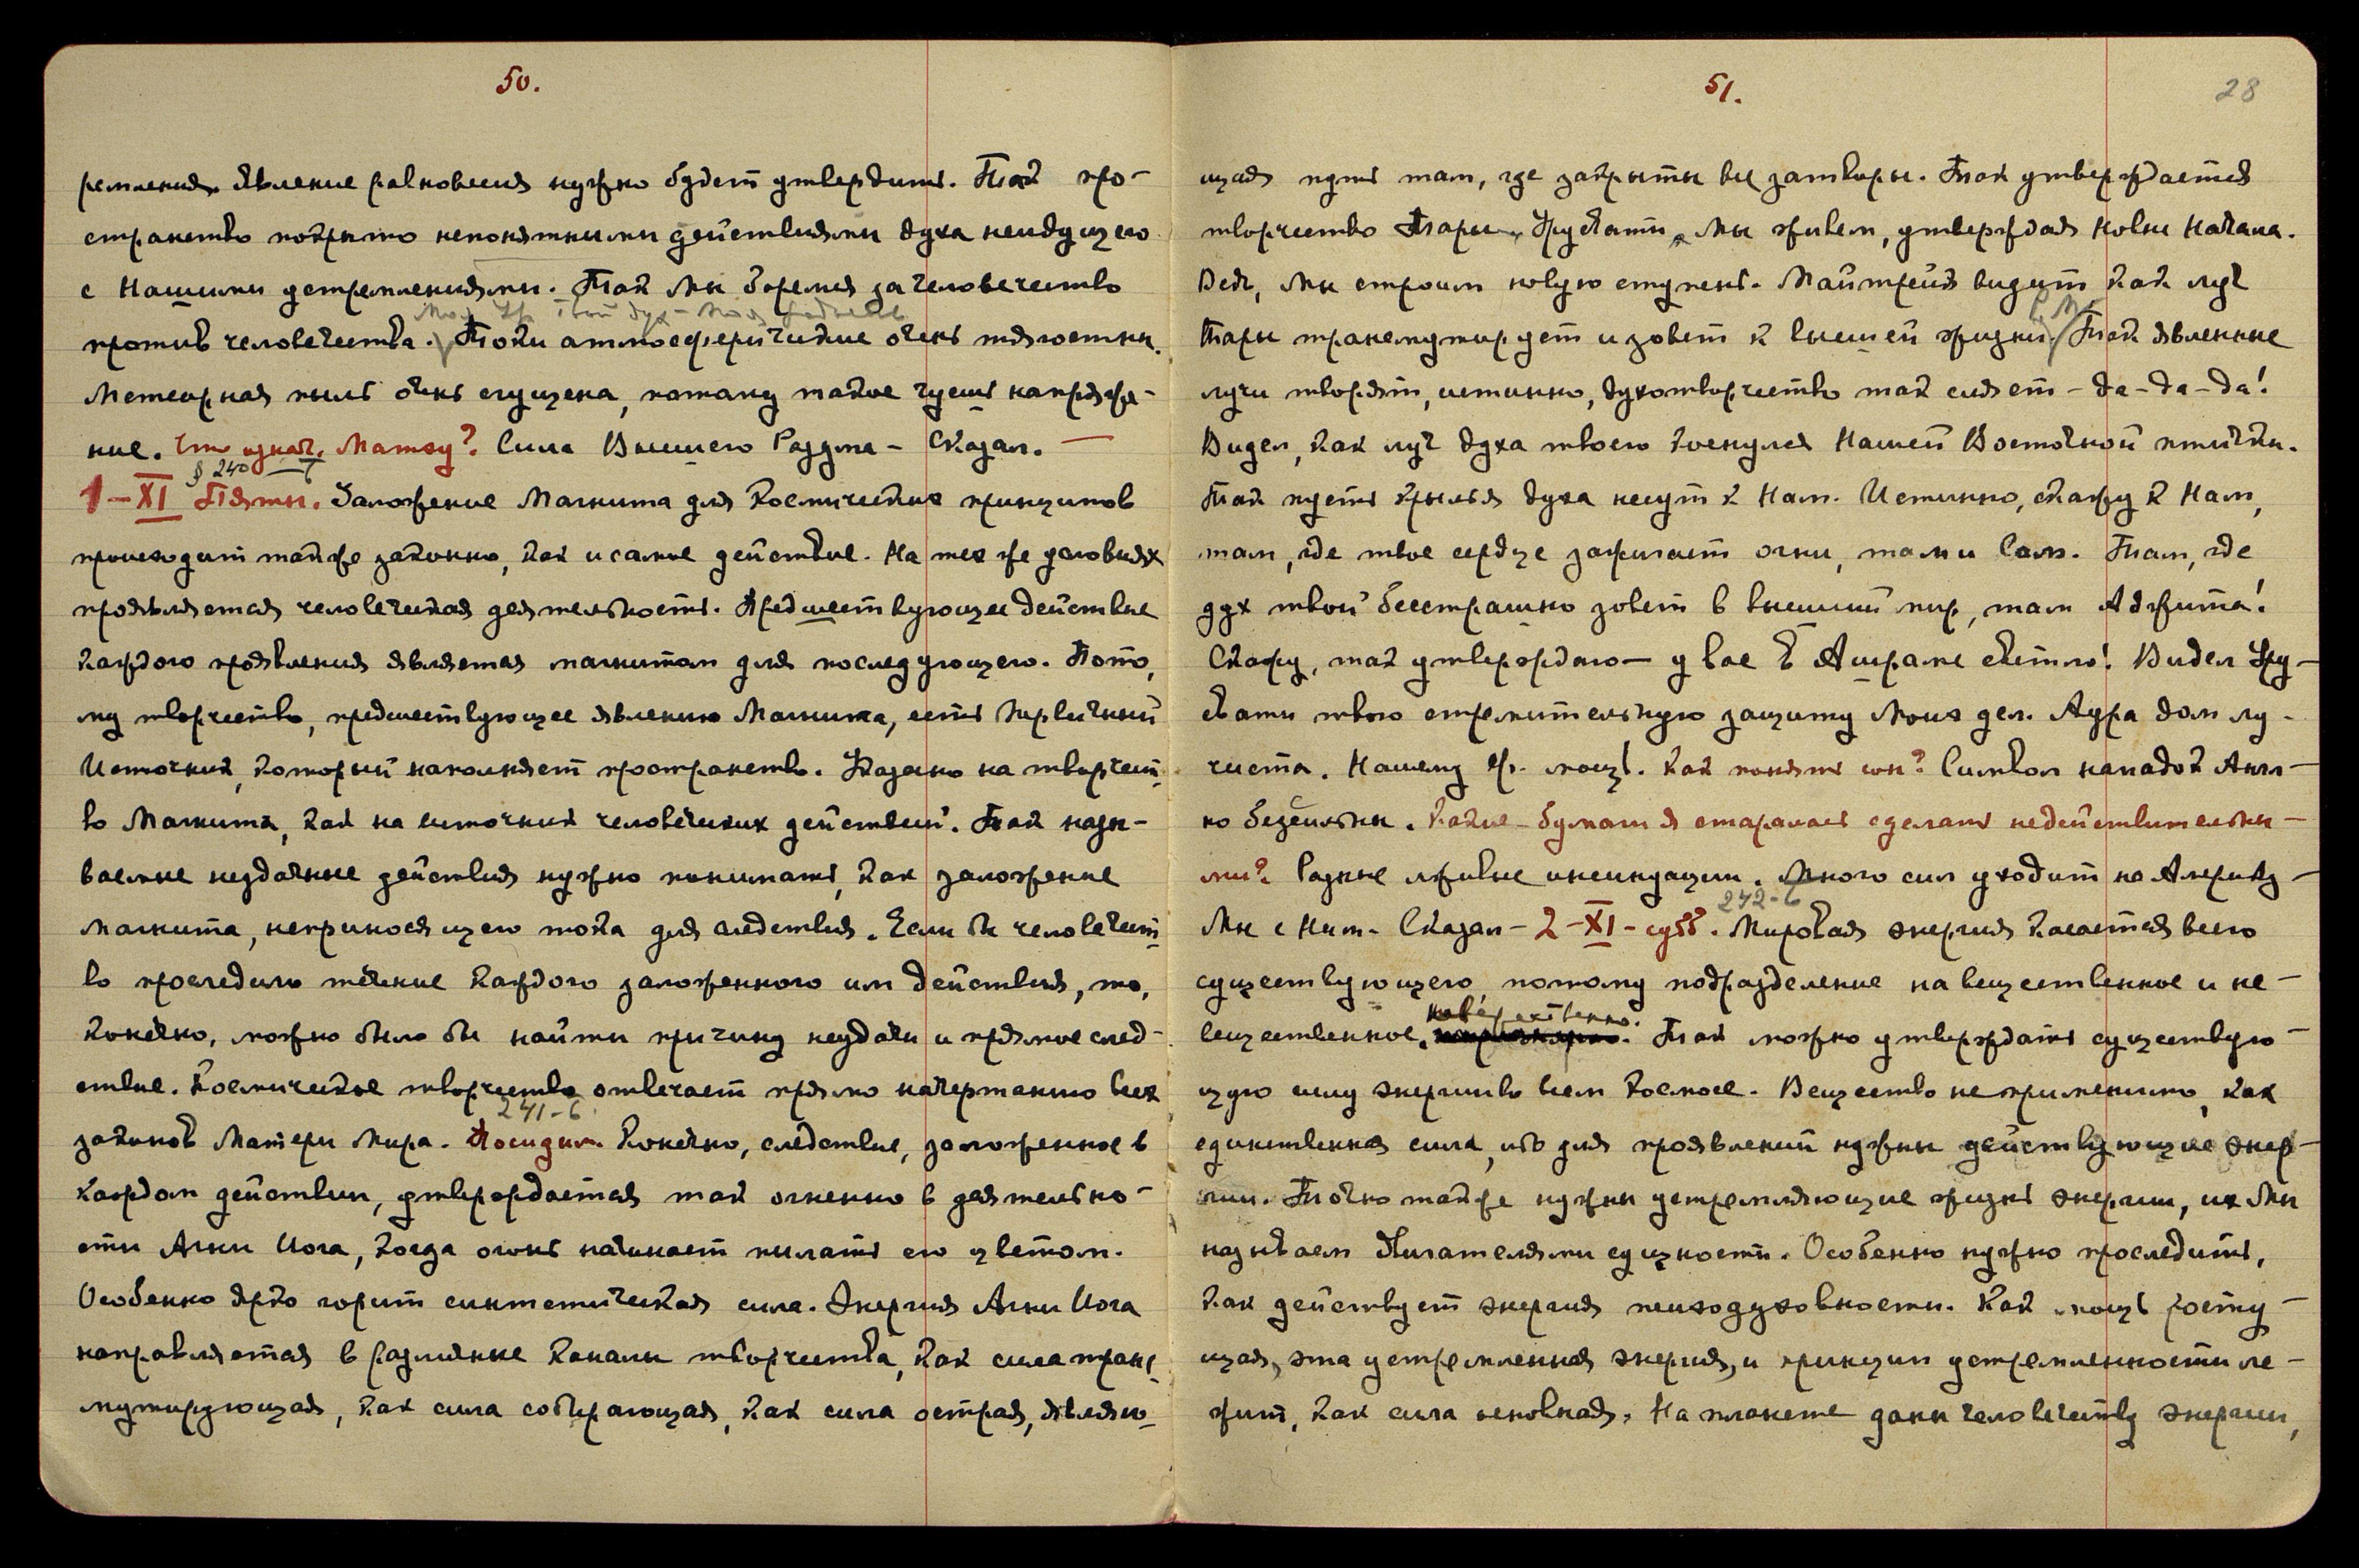 50.
ремления. Явление равновесия нужно будет утвердить. Так про-
странство покрыто непонятными действиями духа неидущего
с Нашими устремлениями. Так Мы боремся за человечество
против человечества. Токи атмосферические очень тягостны.
Метеорная пыль очень сгущена, потому такое чуешь напряже-
ние. Что означ. Матзу? Сила Высшего Разума – Сказал. —
§ 240 – 6
1 – XI Пятн. Заложение Магнита для Космических принципов
происходит также законно, как и самое действие. На тех же условиях
проявляется человеческая деятельность. Предшествующее действие
каждого проявления является магнитом для последующего. Пото,
му творчество, предшествующее явлению Магнита, есть Первичный
Источник, который наполняет пространство. Указано на творчест-
во Магнита, как на источник человеческих действий. Так назы-
ваемые неудачные действия нужно понимать, как заложение
магнита, неприносящего тока для следствия. Если бы человечест
во проследило течение каждого заложенного им действия, то,
конечно, можно было бы найти причину неудачи и прямое след-
ствие. Космическое творчество отвечает прямо начертанию всех
241-6
законов Матери Мира. Посидим. Конечно, следствие, заложенное в
каждом действии, утверждается так огненно в деятельно-
сти Агни Йога, когда огонь начинает пылать его цветом.
Особенно ярко горит синтетическая сила. Энергия Агни Йога
направляется в различные каналы творчества, как сила транс
мутирующая, как сила собирающая, как сила острая, являю-
51.
28
щая путь там, где закрыты все затворы. Так утверждается
творчество Тары. Урусвати, Мы живем, утверждая новые Начала.
Ведь, Мы строим новую ступень. Майтрейя видит как луч
Тары трансмутирует и зовет к высшей жизни. Так явленные
лучи творят, истинно, духотворчество так сияет – да – да – да!
Видел, как луч духа твоего коснулся Нашей Восточной птички.
Так пусть крылья духа несут к Нам. Истинно, скажу к Нам,
там, где твое сердце зажигает огни, там и Сам. Там, где
дух твой бесстрашно зовет в высший мир, там Аджита!
Скажу, так утверждаю – у вас в Ашраме светло! Видел Уру-
свати твою стремительную защиту Моих дел. Аура дом лу-
чиста. Нашему Ф. мощь. Как понять сон? Символ нападок Англ-
но безсильны. Какие бумаги я старалась сделать недействительны-
ми? Разные лживые инсинуации. Много сил уходит на Америку –
Мы с Ним. Сказал – 2 – XI – субб.
242-6
Мировая энергия касается всего
существующего, потому подразделение на вещественное и не-
вещественное, невежественно. Так можно утверждать существую-
щую силу энергии во всем Космосе. Вещество не применимо, как
единственная сила, ибо для проявлений нужны действующие энер-
гии. Точно также нужны устремляющие жизнь энергии, их Мы
называем Пигателями сущности. Особенно нужно проследить,
как действует энергия психодуховности. Как мощь расту-
щая, эта устремленная энергия, и принцип устремленности ле-
жит, как сила основная. На планете даны человечеству энергии,